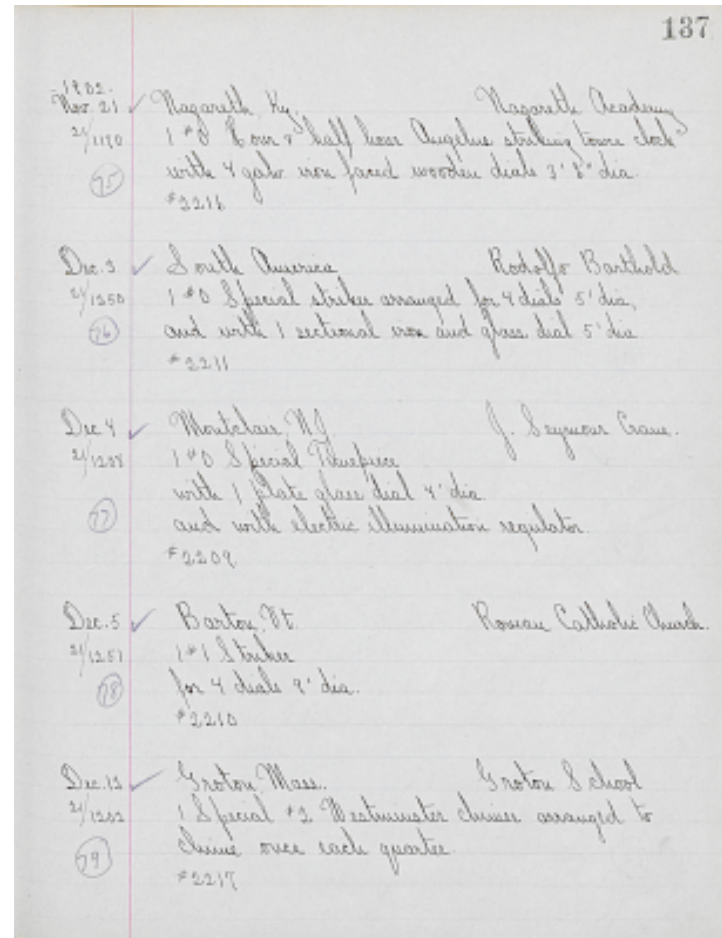 137
1902.
Nov. 21 ✓ Nazareth, Ky. Nazareth Academy
21/1190 1 #0 Hour & half hour Angelus striking tower clock
75 with 4 galv iron faced wooden dials 3' 8" dia.
#2216
Dec. 3 ✓ South America Rodolfo Barthold
21/1250 1 #0 Special striker arranged for 4 dials 5' dia,
76 and with 1 sectional iron and glass dial 5' dia
#2211
Dec 4 ✓ Montclair, N.J. J. Seymour Crane.
21/1258 1 #0 Special Timepiece
with 1 plate glass dial 4' dia
77 and with electric illumination regulator.
#2209
Dec. 5 ✓ Barton, Vt. Roman Catholic Church.
21/1251 1 #1 Striker
78 for 4 dials 9' dia.
#2210
Dec. 12 ✓ Groton, Mass. Groton School
21/1202 1 Special #2 Westminster chimer arranged to
79 chime once each quarter.
#2217